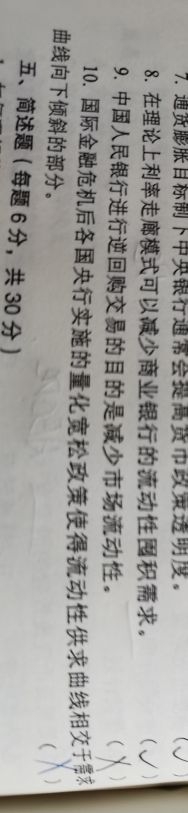 7. 通货膨胀目标制下中央银行通常会提高货币政策透明度。 (✓)
8. 在理论上利率走廊模式可以减少商业银行的流动性囤积需求。 (✓)
9. 中国人民银行进行逆回购交易的目的是减少市场流动性。 (×)
10. 国际金融危机后各国央行实施的量化宽松政策使得流动性供求曲线相交于需求
曲线向下倾斜的部分。 (×)
五、简述题(每题 6 分,共 30 分)